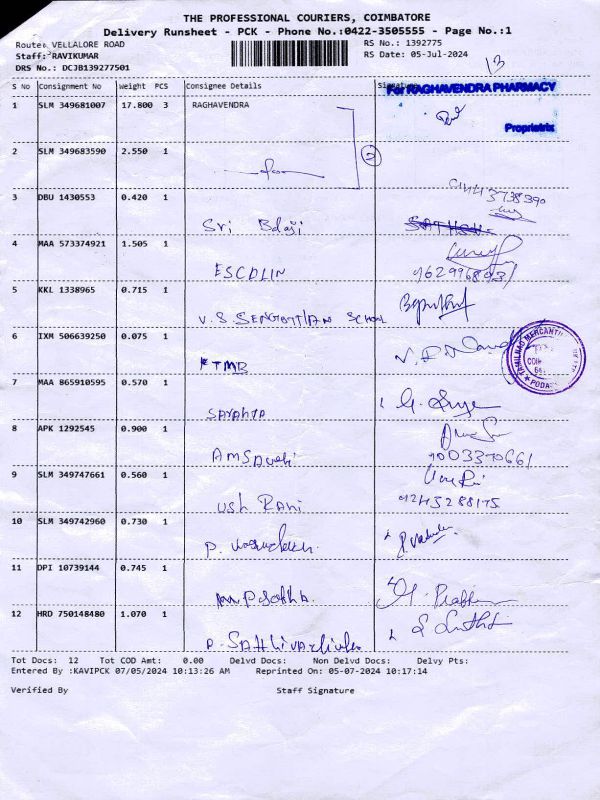 THE PROFESSIONAL COURIERS, COIMBATORE
Delivery Runsheet - PCK - Phone No.:0422-3505555 - Page No.:1
Route: VELLALORE ROAD
RS No.: 1392775
Staff: RAVIKUMAR
RS Date: 05-Jul-2024
DRS No.: DCJB139277501
13
S No Consignment No Weight PCS Consignee Details Signature
For RAGHAVENDRA PHARMACY
1 SLM 349681007 17.800 3 RAGHAVENDRA
Proprietrix
2 SLM 349683590 2.550 1
2
3 DBU 1430553 0.420 1 Sri Balaji
4 MAA 573374921 1.505 1 ESCOLIN
5 KKL 1338965 0.715 1 V.S SENGOTTIAN SCHOOL
6 IXM 506639250 0.075 1 KTMB
TAMILNAD MERCANTILE
PODA
7 MAA 865910595 0.570 1
8 APK 1292545 0.900 1
9 SLM 349747661 0.560 1 USH RANI
10 SLM 349742960 0.730 1
11 DPI 10739144 0.745 1
12 HRD 750148480 1.070 1
Tot Docs: 12 Tot COD Amt: 0.00 Delvd Docs: Non Delvd Docs: Delvy Pts:
Entered By :KAVIPCK 07/05/2024 10:13:26 AM Reprinted On: 05-07-2024 10:17:14
Verified By Staff Signature